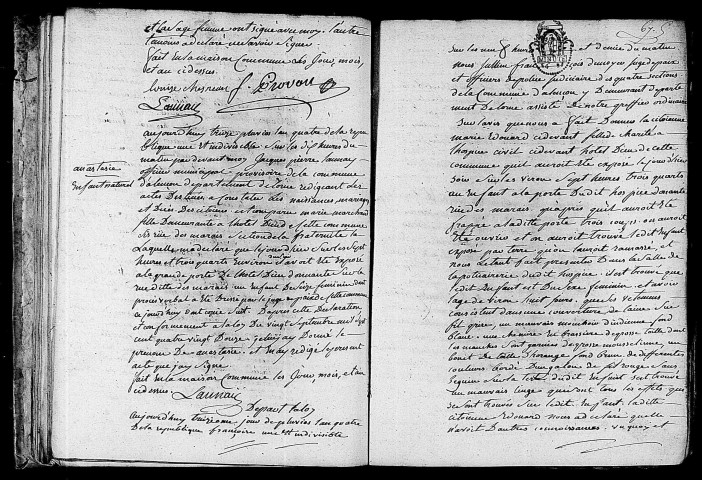 et la sage femme ont signé avec moy. l'autre
temoins a déclaré ne savoir signer.
fait en la maison commune les jour, mois,
et an cidessus.
Louise Chesneau J. Provost
Launay
anastasie
enfant naturel
aujourd'huy treize pluviose l'an quatre de la repu
blique une et indivisible sur les dix heures du
matin par devant moy Jacques pierre, Launay
officier municipal provisoire de la commune
d'alencon departement de l'orne redigeant les
actes destinés a constater les naissances, mariages
et Décès des citoiens est comparue marie
fille Demeurante a l'hotel Dieu de cette commune
rue des marais section de la fraternité
Laquelle m'a declaré que le jour d'hier sur les sept
heures et trois quarts environ il avoit été exposé
a la grande porte De l'hotel Dieu donnante sur la
rue ditte des marais un enfant De sexe feminin dont
procès verbal a été Dressé par le juge de paix de cette commune
ce jourd'huy dont copie suit. D'après cette Declaration
et conformement a la loy De vingt Septembre mil sept
cent quatre vingt Douze je luy ay Donné le
prenom De anastasie. et ay redigé le present
acte que j'ay signé
fait en la maison commune les Jour, mois, et an
cidessus. Launay
Depost
aujourd'huy treizieme jour de pluviose l'an quatre
De la republique françoise une et indivisible
67
sur les neuf heures et demie du matin
nous juge de paix
et officier de police judiciaire des quatre sections
de la Commune d'alencon y Demeurant departe
ment De l'orne assisté de notre greffier ordinaire
Sur l'avis que nous a fait Donner la citoienne
marie edouard cidevant fille de charité a
l'hospice civil cidevant hotel Dieu de cette
commune qu'il auroit été exposé le jour d'hier
soir sur les viron sept heures trois quarts
un enfant a la porte Dudit hospice donante
rue des marais qu'après qu'il auroit été
frappé a laditte porte trois coups on auroit
été ouvrir et on auroit trouvé ledit enfant
exposé par terre qu'on l'auroit ramassé et
nous l'étant fait presenter Dans la salle de
dudit hospice il s'est trouvé que
ledit enfant est Du sexe feminin et avoir
l'age de viron huit jours. que les vetemens
consistent dans une couverture de laine sur
fil grise, un mauvais mouchoir d'indienne fond
blanc une chemise de grosse toille dont
les manches sont garnies de grosse mousseline un
bonet de toille fond brun de differentes
couleurs bordé D'un galon de fil rouge sans
sur la tete dudit enfant s'est trouvé
un mauvais linge que sont tous les effets qui
se sont trouvés sur ledit enfant. laditte
citoienne edouard nous a declaré qu'elle
n'avoit D'autres connoissances.